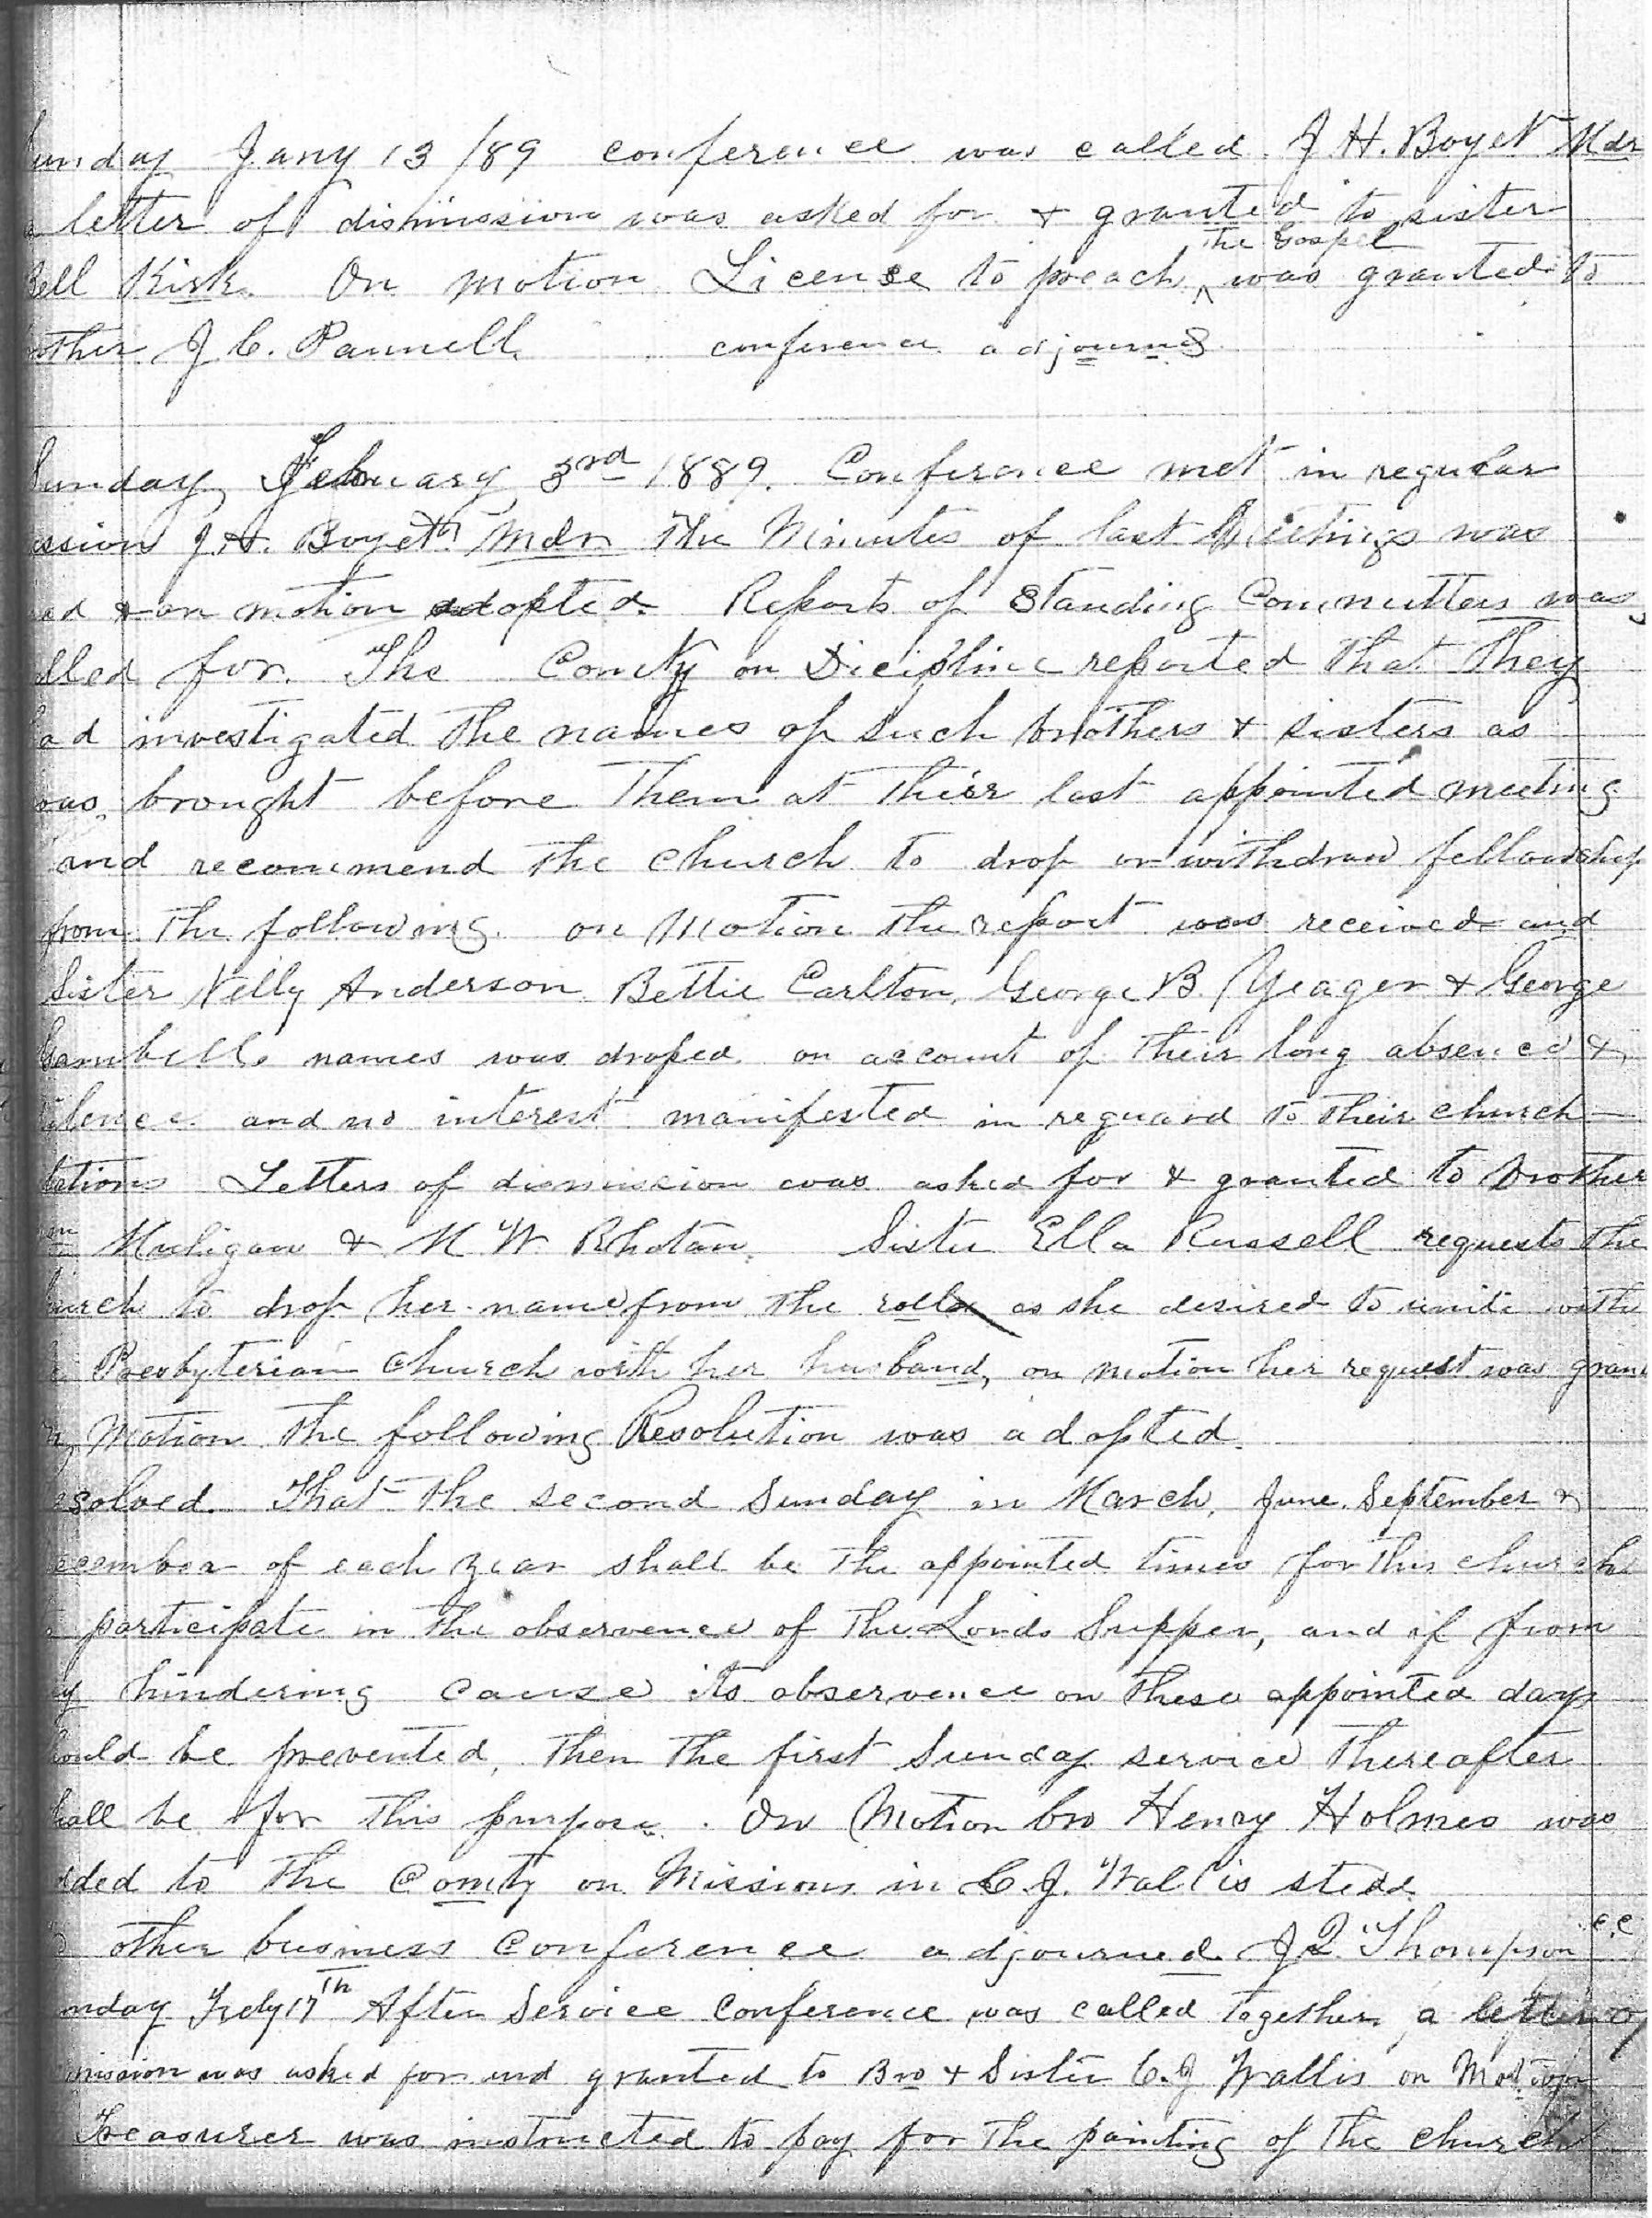 unday Jany 13 /89 conference was called. J H. Boyet Mdr
letter of dismission was asked for & granted to sister
ell Kirk. On motion License to preach the Gospel was granted to
other J C. Pannell. conference adjourned
unday, February 3rd 1889. Conference met in regular
ession J. H. Boyett Mdr. The Minutes of last Meetings was
ed & on motion adopted. Reports of Standing Committees was
lled for. The Comty on Dicipline reported that they
ad investigated the names of such brothers & sisters as
was, brought before them at their last appointed meeting
and recommend the church to drop or withdraw fellowship
from the following. on Motion the report was received and
Sister Nelly Anderson Bettie Carlton, George B. Yeager & George
Gambells names was droped on account of their long absence &
ilence and no interest manifested in reguard to their church
lations Letters of dismission was asked for & granted to brother
Muligan & M W Rhotan. Sister Ella Russell requests the
urch to drop her name from the roll as she desired to unite with
Presbyterian church with her husband, on motion her request was gran
Motion the following Resolution was adopted.
esolved. That the second Sunday in March, June, September &
ecember of each year shall be the appointed times for this church
participate in the observence of the Lords Supper, and if from
ny hindering cause its observence on these appointed days
hould be prevented, then the first Sunday service thereafter
hall be for this purpose. On Motion bro Henry Holmes was
dded to the Comty on Missions in C. J. Wallis stead
other business conference adjourned. J Q. Thompson c.c.
unday Feby 17th After Service Conference was called together, a letter of
mission was asked for and granted to Bro & Sister C. J Wallis on Motion
Treasurer was instructed to pay for the painting of the church